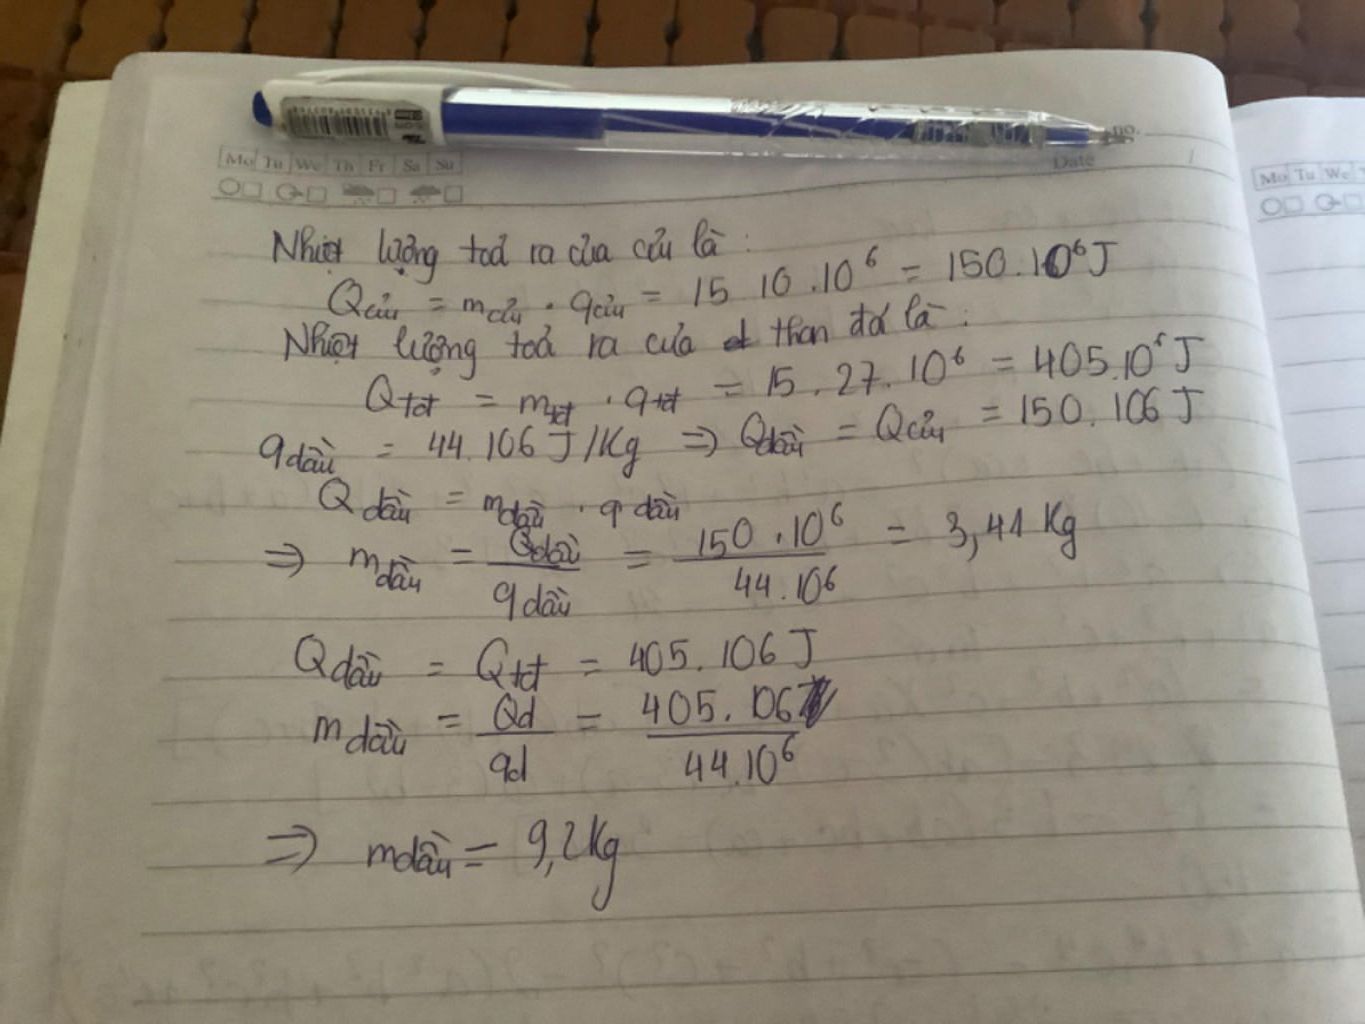 no.
Mo Tu We Th Fr Sa Su
Date
Mo Tu We
Nhiệt lượng toả ra của củi là :
Qcủi = mcủi . qcủi = 15 10 .10⁶ = 150.10⁶J
Nhiệt lượng toả ra của than đá là :
Qtđ = mtđ . qtđ = 15 . 27. 10⁶ = 405.10⁶ J
qdầu = 44. 106 J/Kg => Qdầu = Qcủi = 150. 106 J
Qdầu = mdầu . qdầu
=> mdầu = Qdầu / qdầu = 150 .10⁶ / 44.10⁶ = 3,41 Kg
Qdầu = Qtđ = 405. 106 J
mdầu = Qd / qd = 405. 106 / 44.10⁶
=> mdầu = 9,2Kg